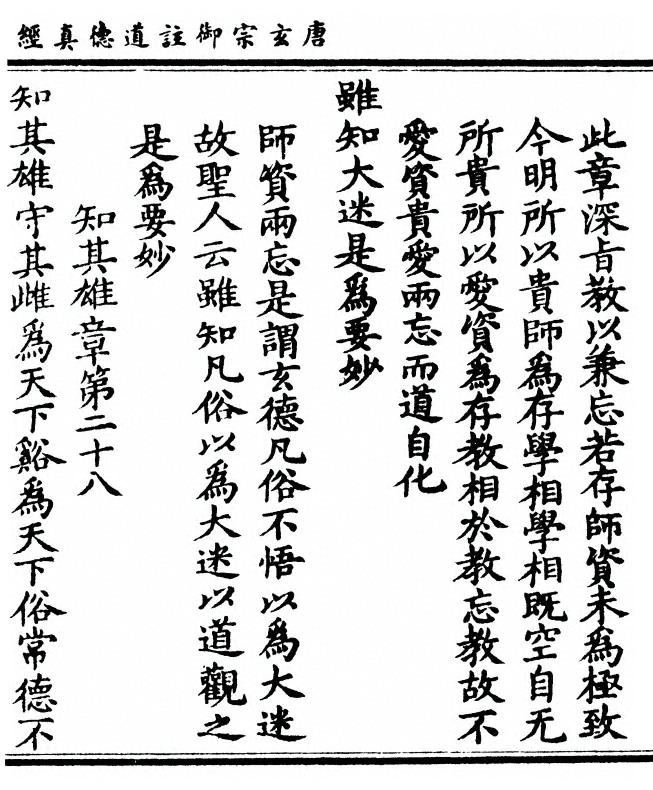 唐玄宗御註道德真經
此章深旨教以兼忘若存師資未爲極致
今明所以貴師爲存學相學相既空自无
所貴所以愛資爲存教相於教忘教故不
愛資貴愛兩忘而道自化
雖知大迷是爲要妙
師資兩忘是謂玄德凡俗不悟以爲大迷
故聖人云雖知凡俗以爲大迷以道觀之
是爲要妙
知其雄章第二十八
知其雄守其雌爲天下谿爲天下俗常德不